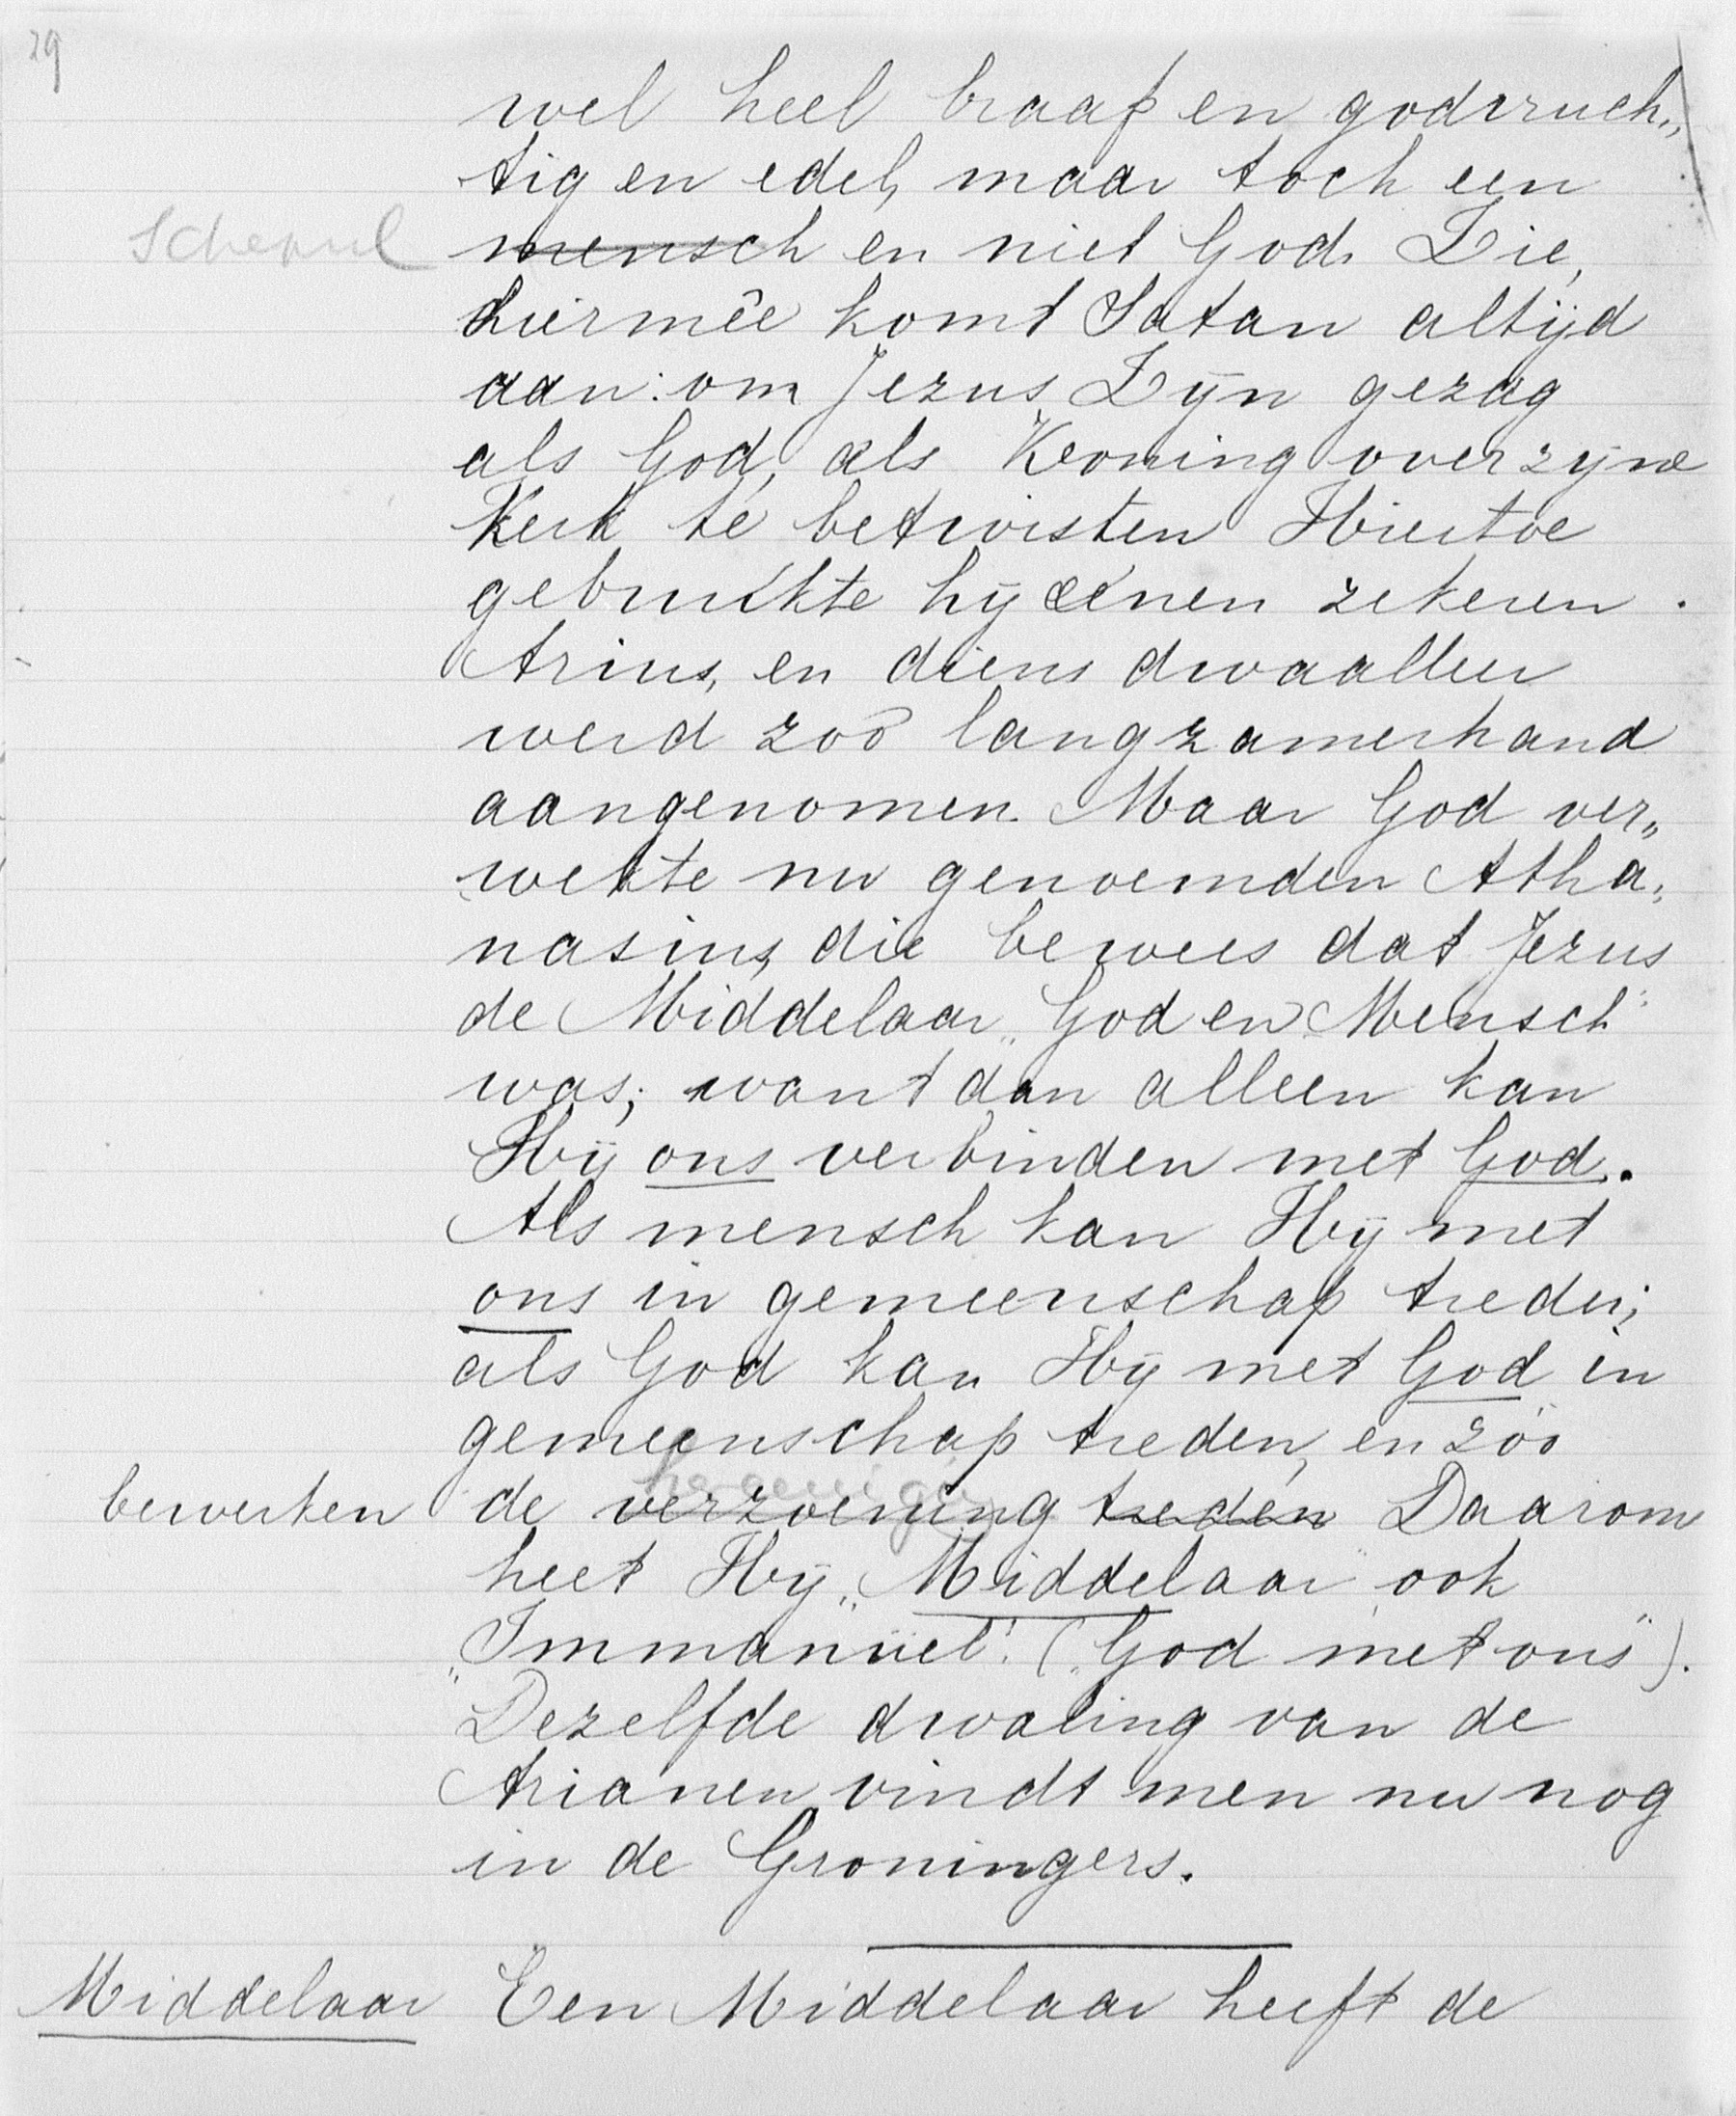 29
wel heel braaf en godvruch„
tig en edel, maar toch een
Schepsel mensch en niet God. Zie,
hiermêe komt Satan altijd
aan: om Jezus Zijn gezag
als God, als Koning over zijne
Kerk te betwisten Hiertoe
gebruikte hij eénen zekeren
Arius, en diens dwaalleer
werd zoó langzamerhand
aangenomen. Maar God ver„
wekte nu genoemden Atha„
nasius, die bewees dat Jezus
de Middelaar „God en Mensch"
was; want dan alleen kan
Hij ons verbinden met God.
Als mensch kan Hij met
ons in gemeenschap treden;
als God kan Hij met God in
gemeenschap treden, en zóó
hereeniging
bewerken de verzoening treden Daarom
heet Hij „Middelaar" ook
„Immanuël" („God met ons").
Dezelfde dwaling van de
Arianen vindt men nu nog
in de Groningers.
Middelaar Een Middelaar heeft de